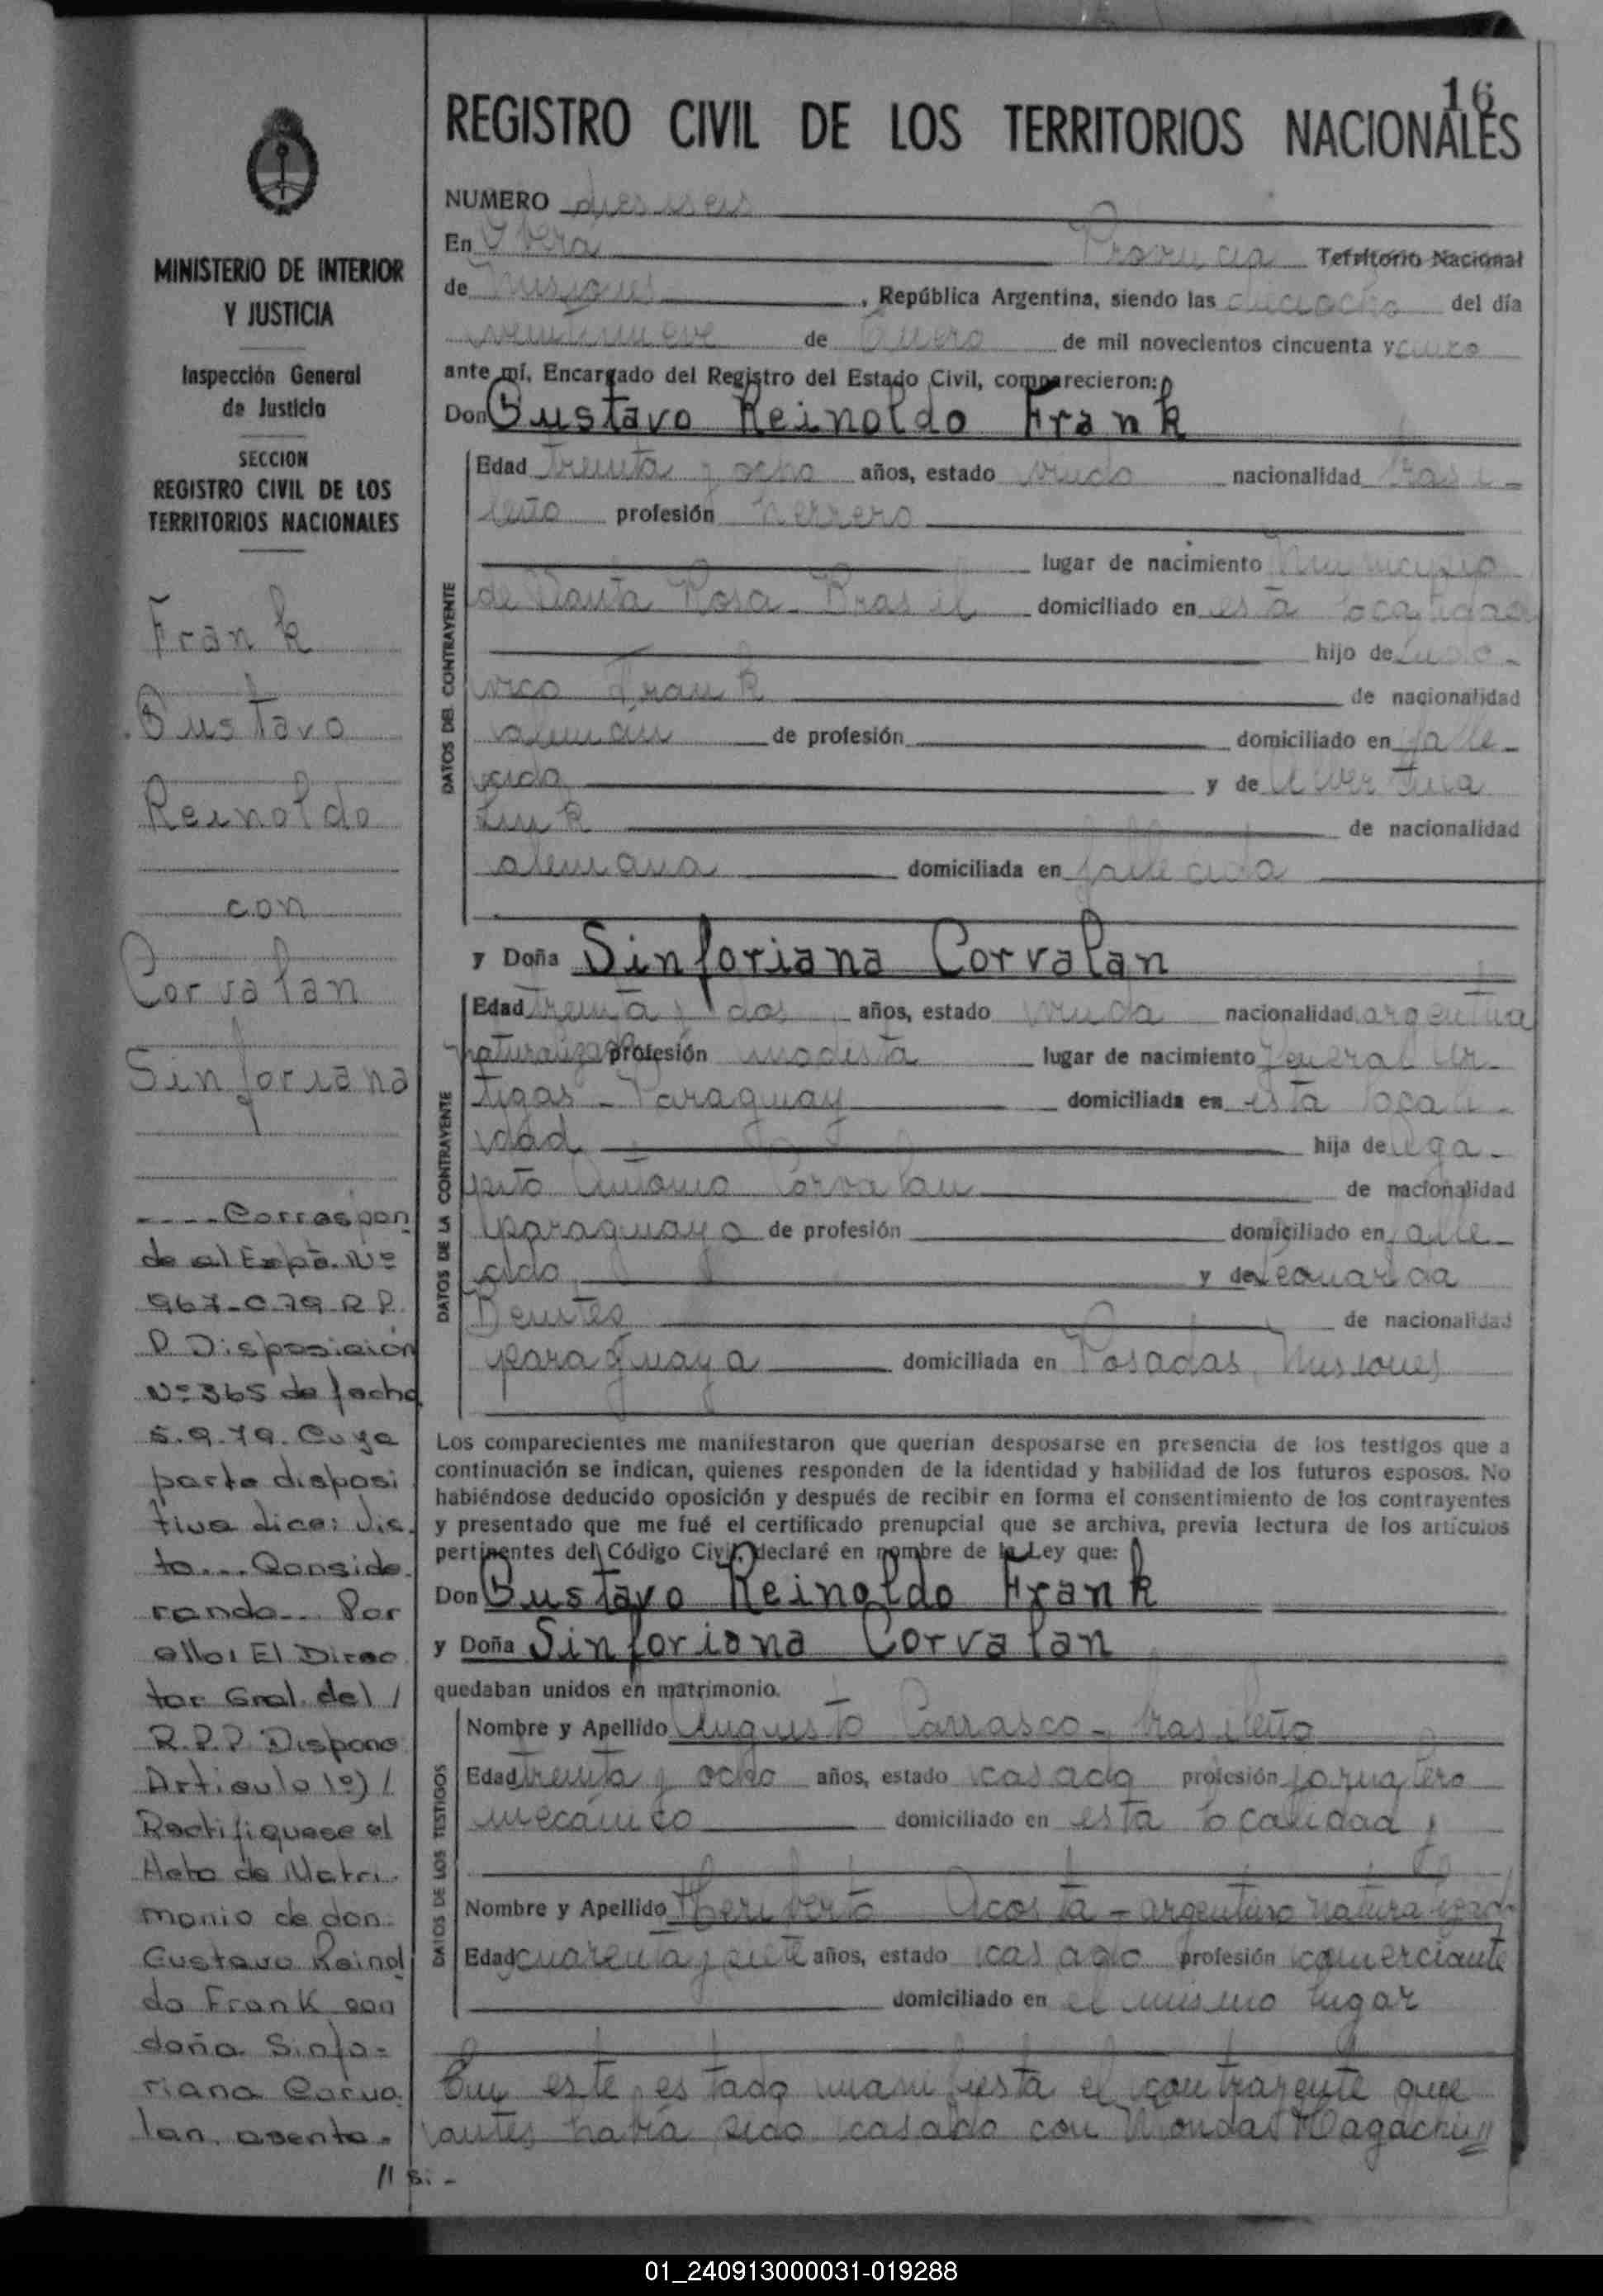 16
REGISTRO CIVIL DE LOS TERRITORIOS NACIONALES
NUMERO dieciseis
En Oberá Provincia Territorio Nacional
de Misiones, República Argentina, siendo las dieciocho del día
veintinueve de Enero de mil novecientos cincuenta y cinco
ante mí, Encargado del Registro del Estado Civil, comparecieron:
Don Gustavo Reinoldo Frank
DATOS DEL CONTRAYENTE
Edad treinta y ocho años, estado viudo nacionalidad brasi-
leño profesión herrero
lugar de nacimiento Municipio
de Santa Rosa - Brasil domiciliado en esta localidad
hijo de
Frank de nacionalidad
alemán de profesión domiciliado en falle-
cido y de Albertina
de nacionalidad
alemana domiciliada en fallecida
y Doña Sinforiana Corvalan
DATOS DE LA CONTRAYENTE
Edad treinta y dos años, estado viuda nacionalidad argentina
naturalizada profesión modista lugar de nacimiento General Ar-
tigas - Paraguay domiciliada en esta locali-
dad hija de Aga-
pito Antonio Corvalan de nacionalidad
paraguayo de profesión domiciliado en falle-
cido y de Leonarda
Benites de nacionalidad
paraguaya domiciliada en Posadas, Misiones
Los comparecientes me manifestaron que querían desposarse en presencia de los testigos que a
continuación se indican, quienes responden de la identidad y habilidad de los futuros esposos. No
habiéndose deducido oposición y después de recibir en forma el consentimiento de los contrayentes
y presentado que me fué el certificado prenupcial que se archiva, previa lectura de los artículos
pertinentes del Código Civil, declaré en nombre de la Ley que:
Don Gustavo Reinoldo Frank
y Doña Sinforiana Corvalan
quedaban unidos en matrimonio.
DATOS DE LOS TESTIGOS
Nombre y Apellido Augusto Carrasco - brasileño
Edad treinta y ocho años, estado casado profesión
mecánico domiciliado en esta localidad y
Nombre y Apellido Heriberto Acosta - argentino naturalizado
Edad cuarenta y siete años, estado casado profesión comerciante
domiciliado en el mismo lugar
En este estado manifiesta el contrayente que
antes había sido casado con
MINISTERIO DE INTERIOR
Y JUSTICIA
Inspección General
de Justicia
SECCION
REGISTRO CIVIL DE LOS
TERRITORIOS NACIONALES
Frank
Gustavo
Reinoldo
con
Corvalan
Sinforiana
----Correspon
de al Expte. Nº
967-C-79-R.P.
P. Disposición
Nº 365 de fecha
5.9.79. Cuya
parte disposi
tiva dice: Vis
to... Conside
rando... Por
ello: El Direc
tor Gral. del /
R.P.P. Dispone
Articulo 1º) /
Rectifiquese el
Acta de Matri
monio de don
Gustavo Reinol
do Frank con
doña Sinfo-
riana Corva
lan, asenta-
//s:-
01_240913000031-019288